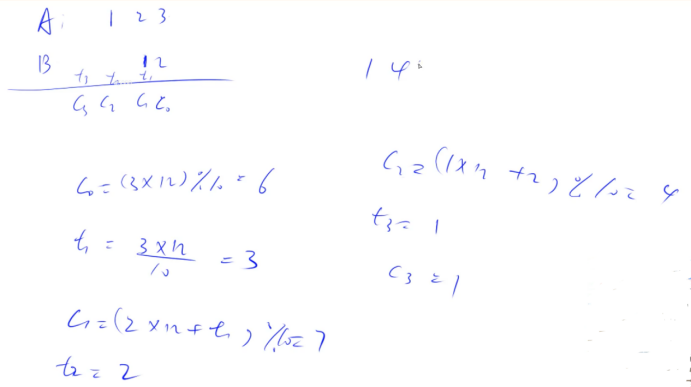 A: 1 2 3
B 1 2
t₃ t₂ t₁
C₃ C₂ C₁ C₀
1 4
C₀ = (3×12) % 10 = 6
t₁ = 3×12 / 10 = 3
C₁ = (2×12 + t₁) % 10 = 7
t₂ = 2
C₂ = (1×12 + 2) % 10 = 4
t₃ = 1
C₃ = 1